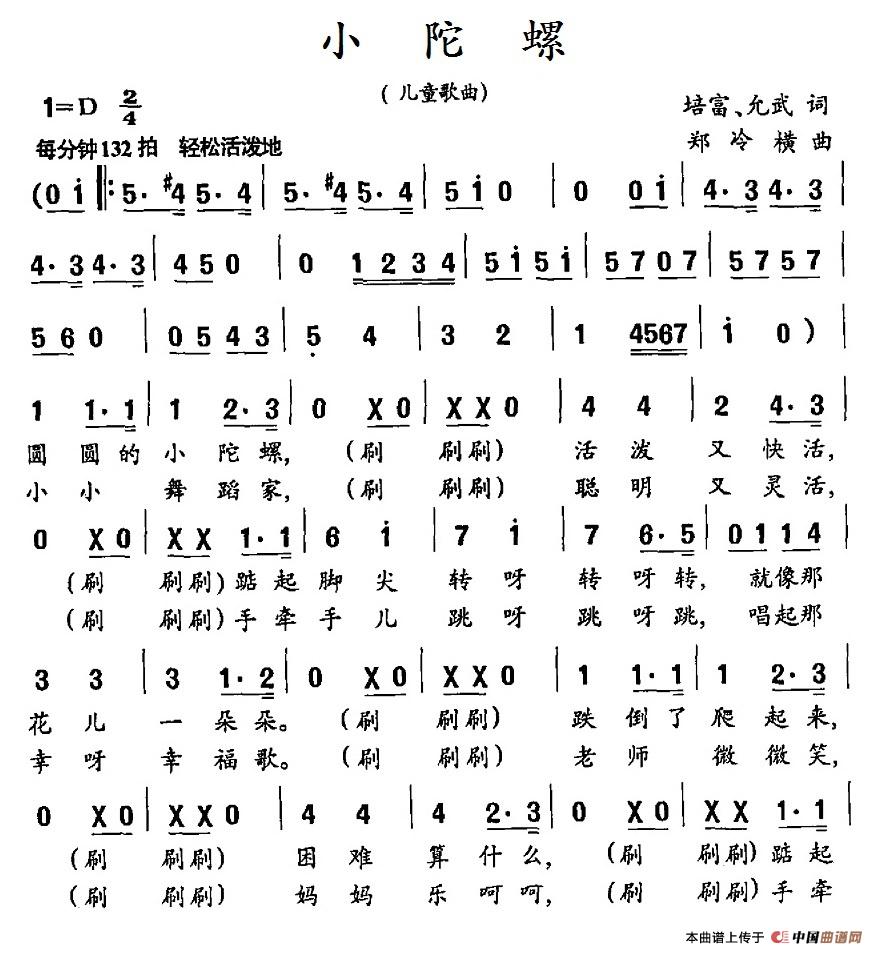 小 陀 螺
(儿童歌曲)
1=D 2/4
培富、允武 词
每分钟132拍 轻松活泼地
郑 冷 横 曲
(0 i |: 5· #4 5· 4 | 5· #4 5· 4 | 5 i 0 | 0 0 i | 4· 3 4· 3 |
4· 3 4· 3 | 4 5 0 | 0 1 2 3 4 | 5 i 5 i | 5 7 0 7 | 5 7 5 7 |
5 6 0 | 0 5 4 3 | 5 4 | 3 2 | 1 4567 | i 0 )
1 1· 1 | 1 2· 3 | 0 X 0 | X X 0 | 4 4 | 2 4· 3 |
圆 圆 的 小 陀 螺, (刷 刷刷) 活 泼 又 快 活,
小 小 舞 蹈 家, (刷 刷刷) 聪 明 又 灵 活,
0 X 0 | X X 1· 1 | 6 i | 7 i | 7 6· 5 | 0 1 1 4 |
(刷 刷刷) 踮 起 脚 尖 转 呀 转 呀 转, 就 像 那
(刷 刷刷) 手 牵 手 儿 跳 呀 跳 呀 跳, 唱 起 那
3 3 | 3 1· 2 | 0 X 0 | X X 0 | 1 1· 1 | 1 2· 3 |
花 儿 一 朵 朵。 (刷 刷刷) 跌 倒 了 爬 起 来,
幸 呀 幸 福 歌。 (刷 刷刷) 老 师 微 微 笑,
0 X 0 | X X 0 | 4 4 | 4 2· 3 | 0 X 0 | X X 1· 1 |
(刷 刷刷) 困 难 算 什 么, (刷 刷刷) 踮 起
(刷 刷刷) 妈 妈 乐 呵 呵, (刷 刷刷) 手 牵
本曲谱上传于 中国曲谱网